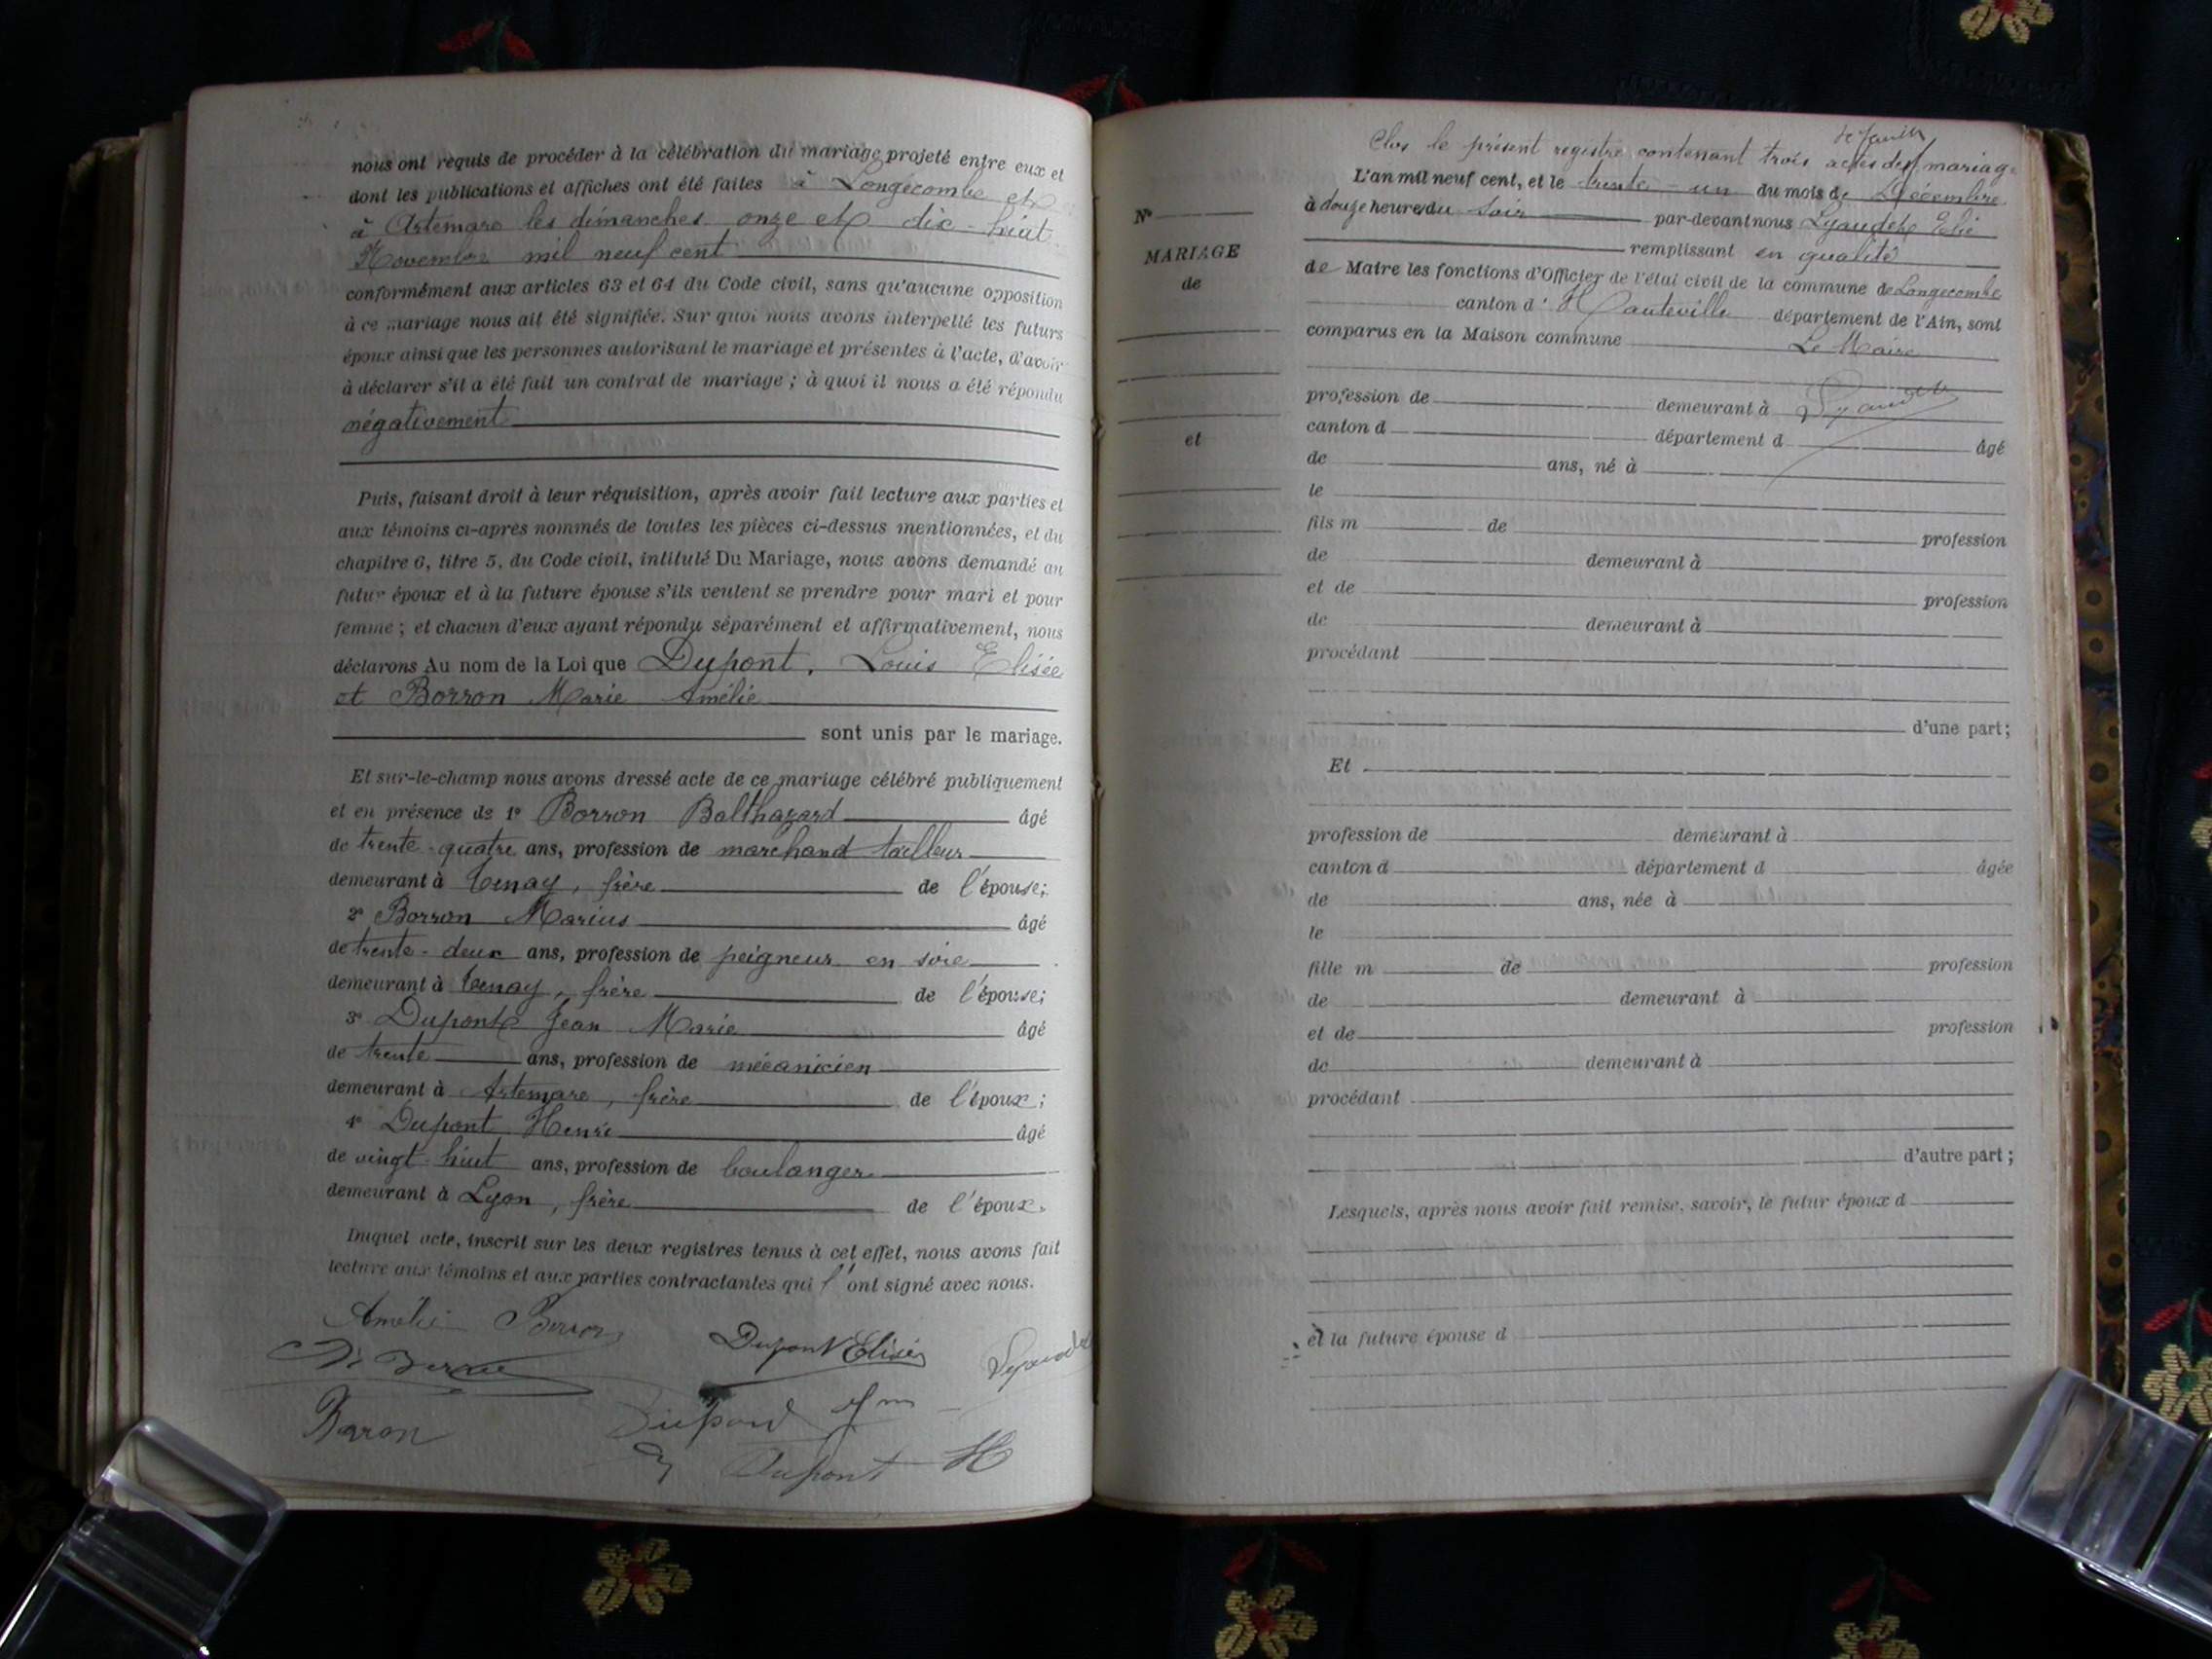 nous ont requis de procéder à la célébration du mariage projeté entre eux et
dont les publications et affiches ont été faites à Longecombe et
à Artemare les dimanches onze et dix-huit
Novembre mil neuf cent
conformément aux articles 63 et 64 du Code civil, sans qu'aucune opposition
à ce mariage nous ait été signifiée. Sur quoi nous avons interpellé les futurs
époux ainsi que les personnes autorisant le mariage et présentes à l'acte, d'avoir
à déclarer s'il a été fait un contrat de mariage ; à quoi il nous a été répondu
négativement
Puis, faisant droit à leur réquisition, après avoir fait lecture aux parties et
aux témoins ci-après nommés de toutes les pièces ci-dessus mentionnées, et du
chapitre 6, titre 5, du Code civil, intitulé Du Mariage, nous avons demandé au
futur époux et à la future épouse s'ils veulent se prendre pour mari et pour
femme ; et chacun d'eux ayant répondu séparément et affirmativement, nous
déclarons Au nom de la Loi que Dupont, Louis Elisée
et Borron Marie Amélie
sont unis par le mariage.
Et sur-le-champ nous avons dressé acte de ce mariage célébré publiquement
et en présence de 1° Borron Balthazard âgé
de trente-quatre ans, profession de marchand tailleur
demeurant à Tenay, frère de l'épouse;
2° Borron Marius âgé
de trente-deux ans, profession de peigneur en soie
demeurant à Tenay, frère de l'épouse;
3° Dupont Jean Marie âgé
de trente ans, profession de mécanicien
demeurant à Artemare, frère de l'époux;
4° Dupont Henri âgé
de vingt-huit ans, profession de boulanger
demeurant à Lyon, frère de l'époux.
Duquel acte, inscrit sur les deux registres tenus à cet effet, nous avons fait
lecture aux témoins et aux parties contractantes qui l'ont signé avec nous.
Amélie Borron
Dupont Elisée
Baron
Dupont H
Clos le présent registre contenant trois actes de mariage
L'an mil neuf cent, et le trente-un du mois de Décembre
à douze heure du soir par-devant nous Lyaudet Elie
remplissant en qualité
de Maire les fonctions d'Officier de l'état civil de la commune de Longecombe
canton d'Hauteville département de l'Ain, sont
comparus en la Maison commune Le Maire
N°
MARIAGE
de
et
Lyaudet
profession de demeurant à
canton d département d âgé
de ans, né à
le
fils m de profession
de demeurant à
et de profession
de demeurant à
procédant
d'une part;
Et
profession de demeurant à
canton d département d âgée
de ans, née à
le
fille m de profession
de demeurant à
et de profession
de demeurant à
procédant
d'autre part;
Lesquels, après nous avoir fait remise, savoir, le futur époux d
et la future épouse d